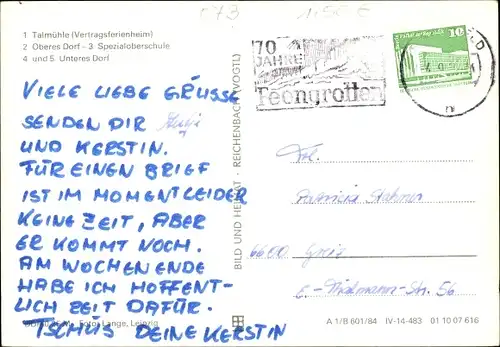 673 1.50 €
1 Talmühle (Vertragsferienheim)
2 Oberes Dorf - 3 Spezialoberschule
4 und 5 Unteres Dorf
VIELE LIEBE GRÜSSE
SENDEN DIR
UND KERSTIN.
FÜR EINEN BRIEF
IST IM MOMENT LEIDER
KEINE ZEIT, ABER
ER KOMMT NOCH.
AM WOCHENENDE
HABE ICH HOFFENT-
LICH ZEIT DAFÜR.
TSCHÜS DEINE KERSTIN
Foto: Lange, Leipzig
BILD UND HEIMAT · REICHENBACH (VOGTL)
70
JAHRE
Feengrotten
10
Frl.
6600 Greiz
E.-Thälmann-Str. 56
A 1/B 601/84 IV-14-483 01 10 07 616